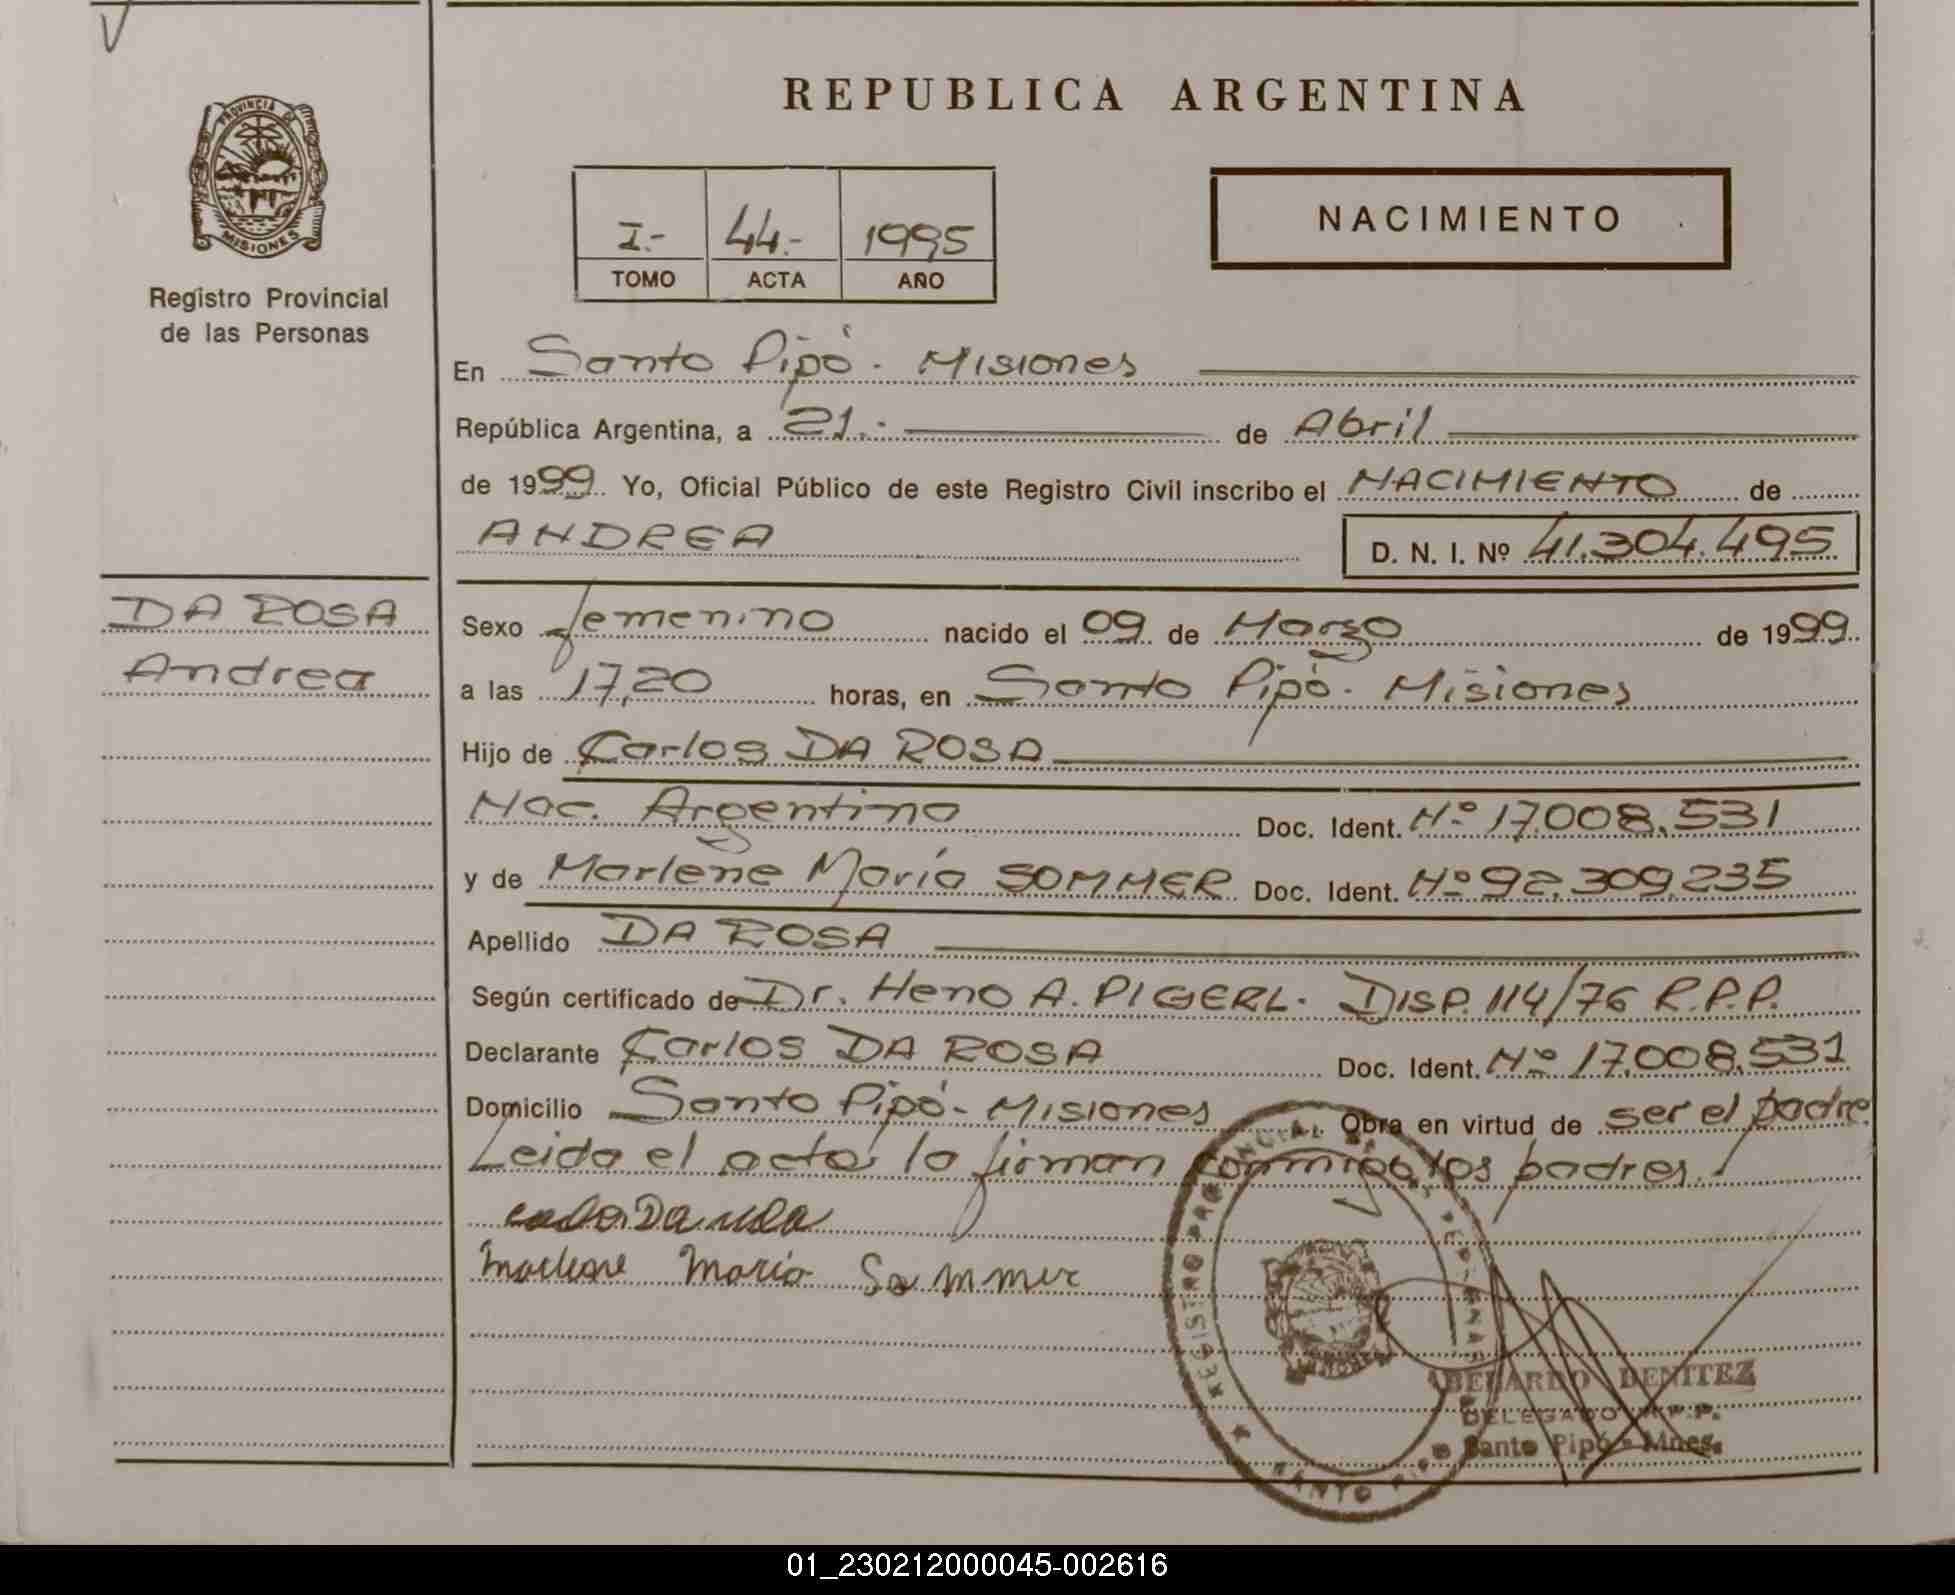 REPUBLICA ARGENTINA
PROVINCIA DE
MISIONES
Registro Provincial
de las Personas
I.- 44.- 1995
TOMO ACTA AÑO
NACIMIENTO
En Santo Pipó - Misiones
República Argentina, a 21.- de Abril
de 1999 Yo, Oficial Público de este Registro Civil inscribo el NACIMIENTO de
ANDREA D. N. I. Nº 41.304.495
DA ROSA
Andrea
Sexo femenino nacido el 09 de Marzo de 1999
a las 17,20 horas, en Santo Pipó - Misiones
Hijo de Carlos DA ROSA
Nac. Argentino Doc. Ident. Nº 17.008.531
y de Marlene María SOMMER Doc. Ident. Nº 92.309.235
Apellido DA ROSA
Según certificado de Dr. Heno A. PIGERL. DISP. 114/76 R.P.P.
Declarante Carlos DA ROSA Doc. Ident. Nº 17.008.531
Domicilio Santo Pipó - Misiones Obra en virtud de ser el padre.
Leida el acta, la firman conmigo los padres.
Marlene Maria Sommer
REGISTRO PROVINCIAL DE LAS PERSONAS
SANTO PIPO
ABELARDO BENITEZ
DELEGADO R.P.P.
Santo Pipó - Mnes.
01_230212000045-002616